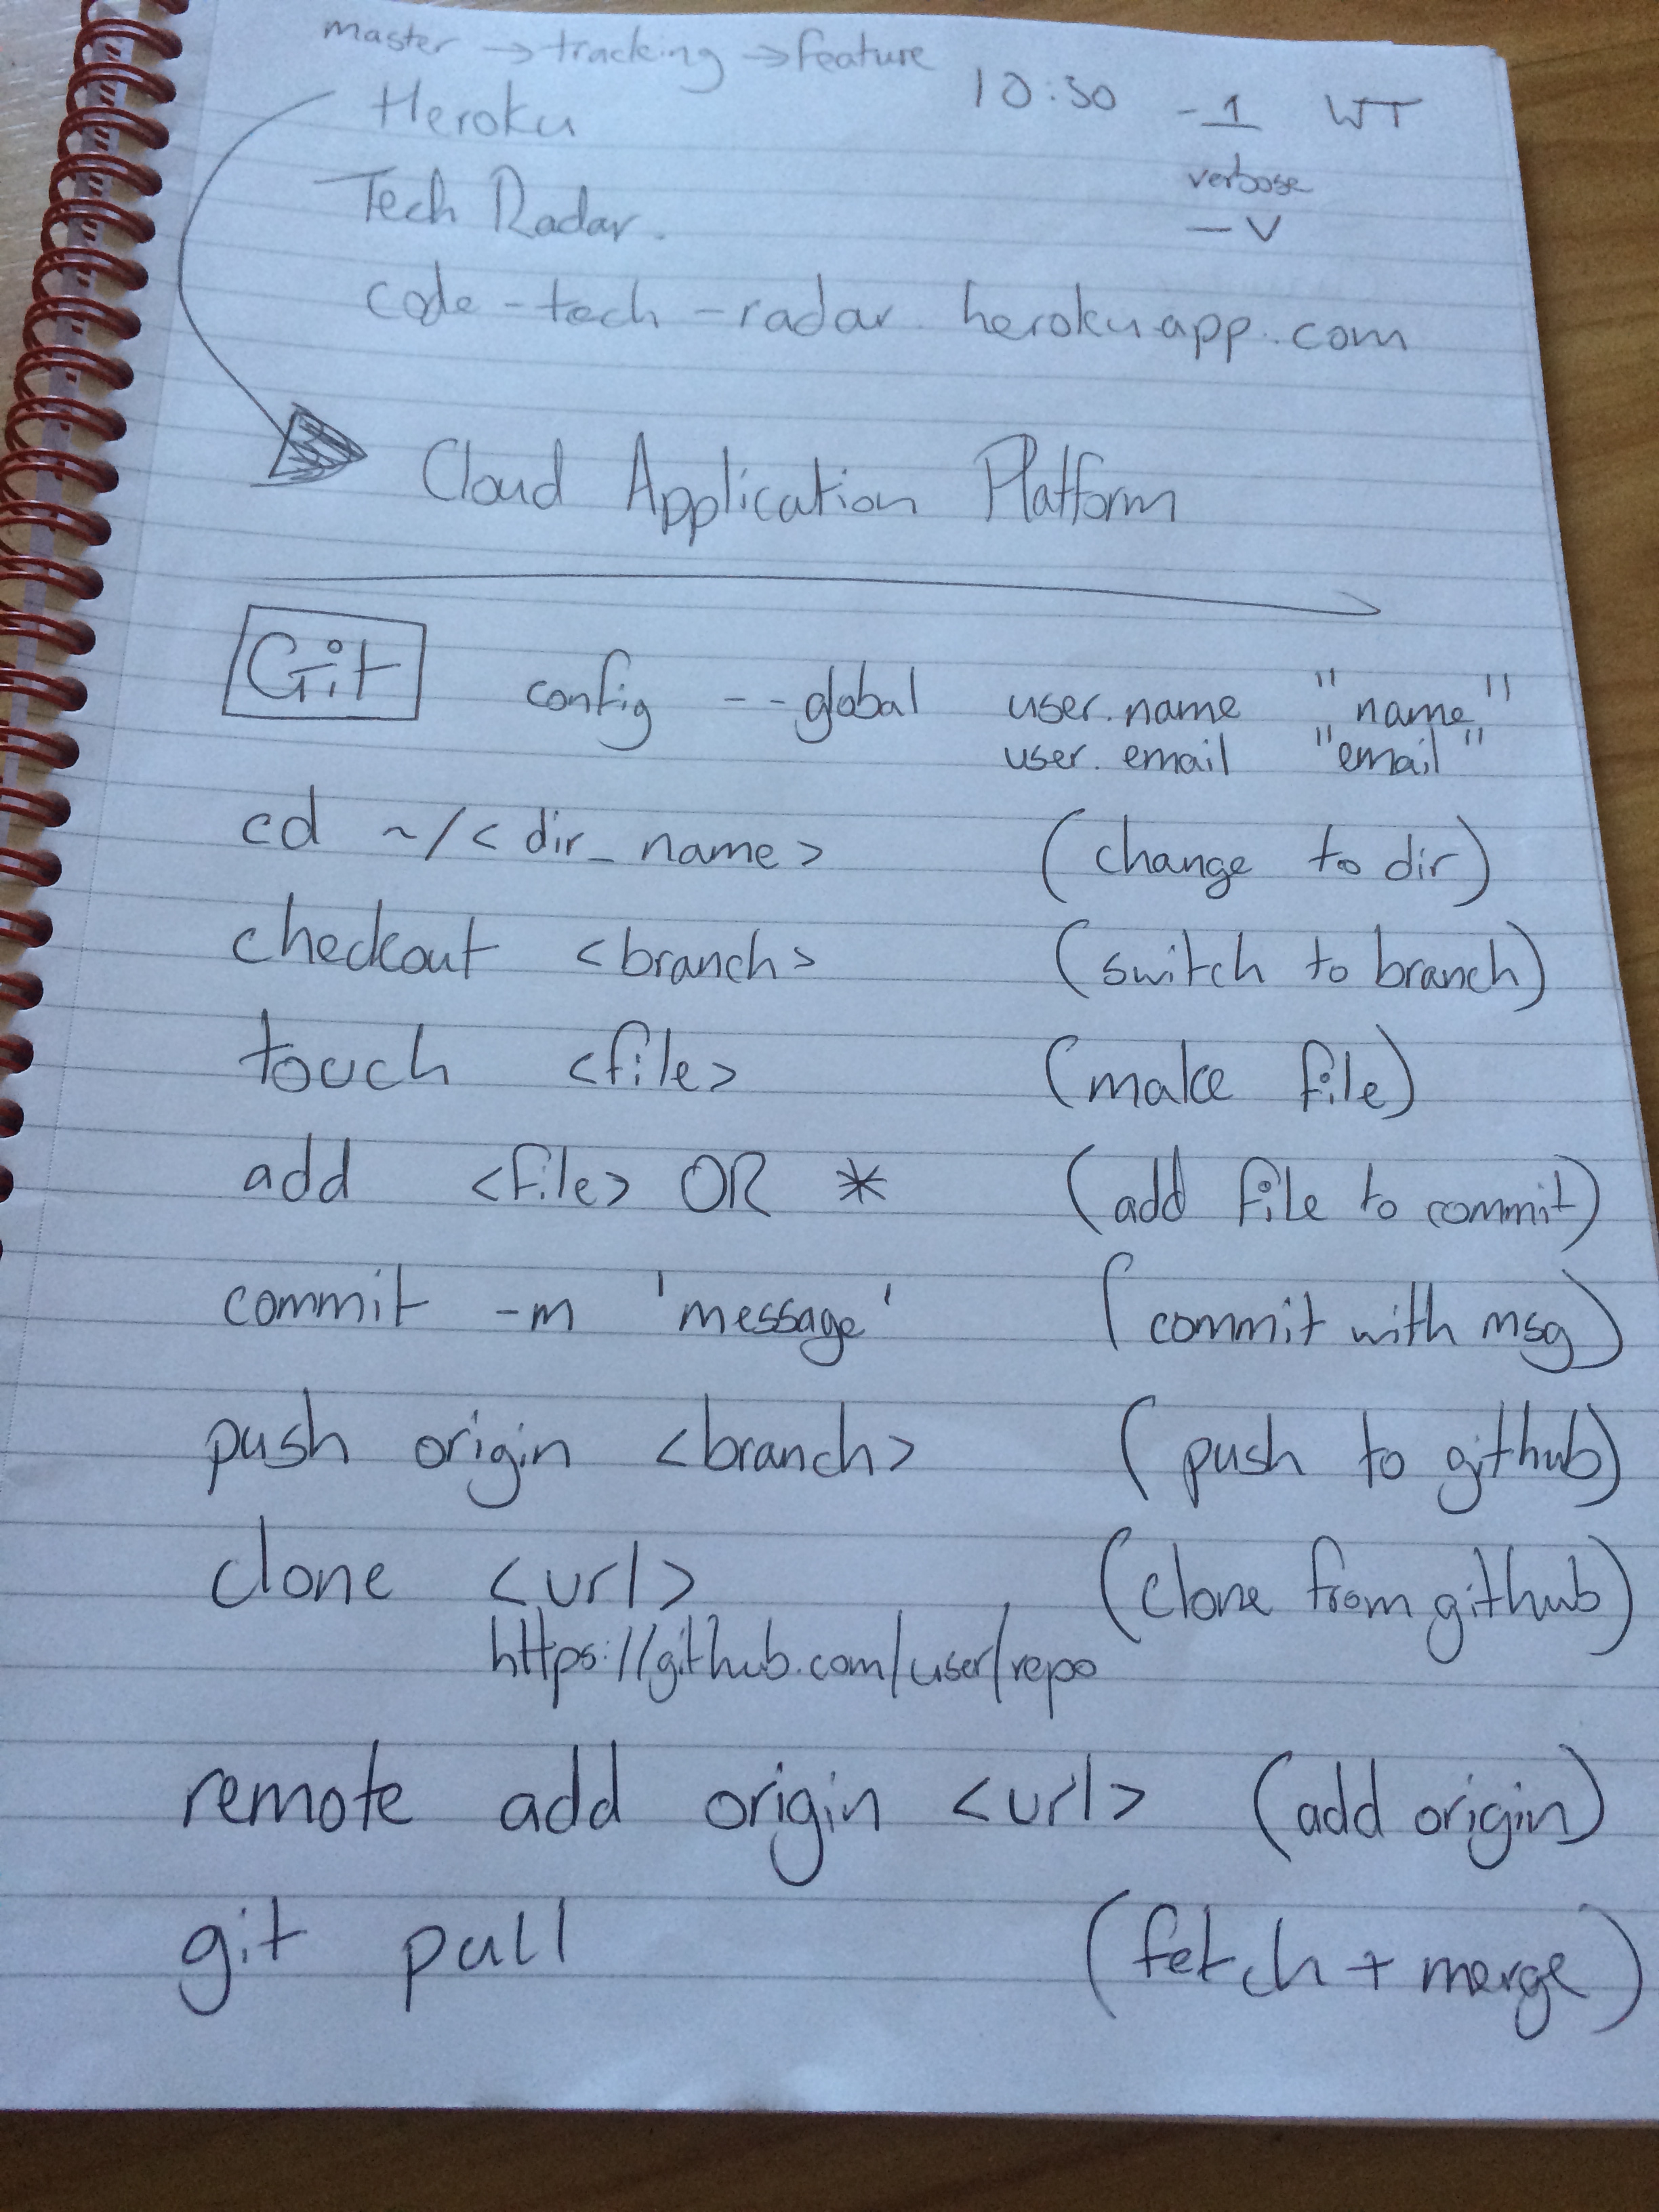 master → tracking → feature
Heroku 10:30 -1 WT
Tech Radar. verbose
-v
code-tech-radar.herokuapp.com
Cloud Application Platform
Git config --global user.name "name"
user.email "email"
cd ~/<dir_name> (change to dir)
checkout <branch> (switch to branch)
touch <file> (make file)
add <file> OR * (add file to commit)
commit -m 'message' (commit with msg)
push origin <branch> (push to github)
clone <url> (clone from github)
https://github.com/user/repo
remote add origin <url> (add origin)
git pull (fetch + merge)